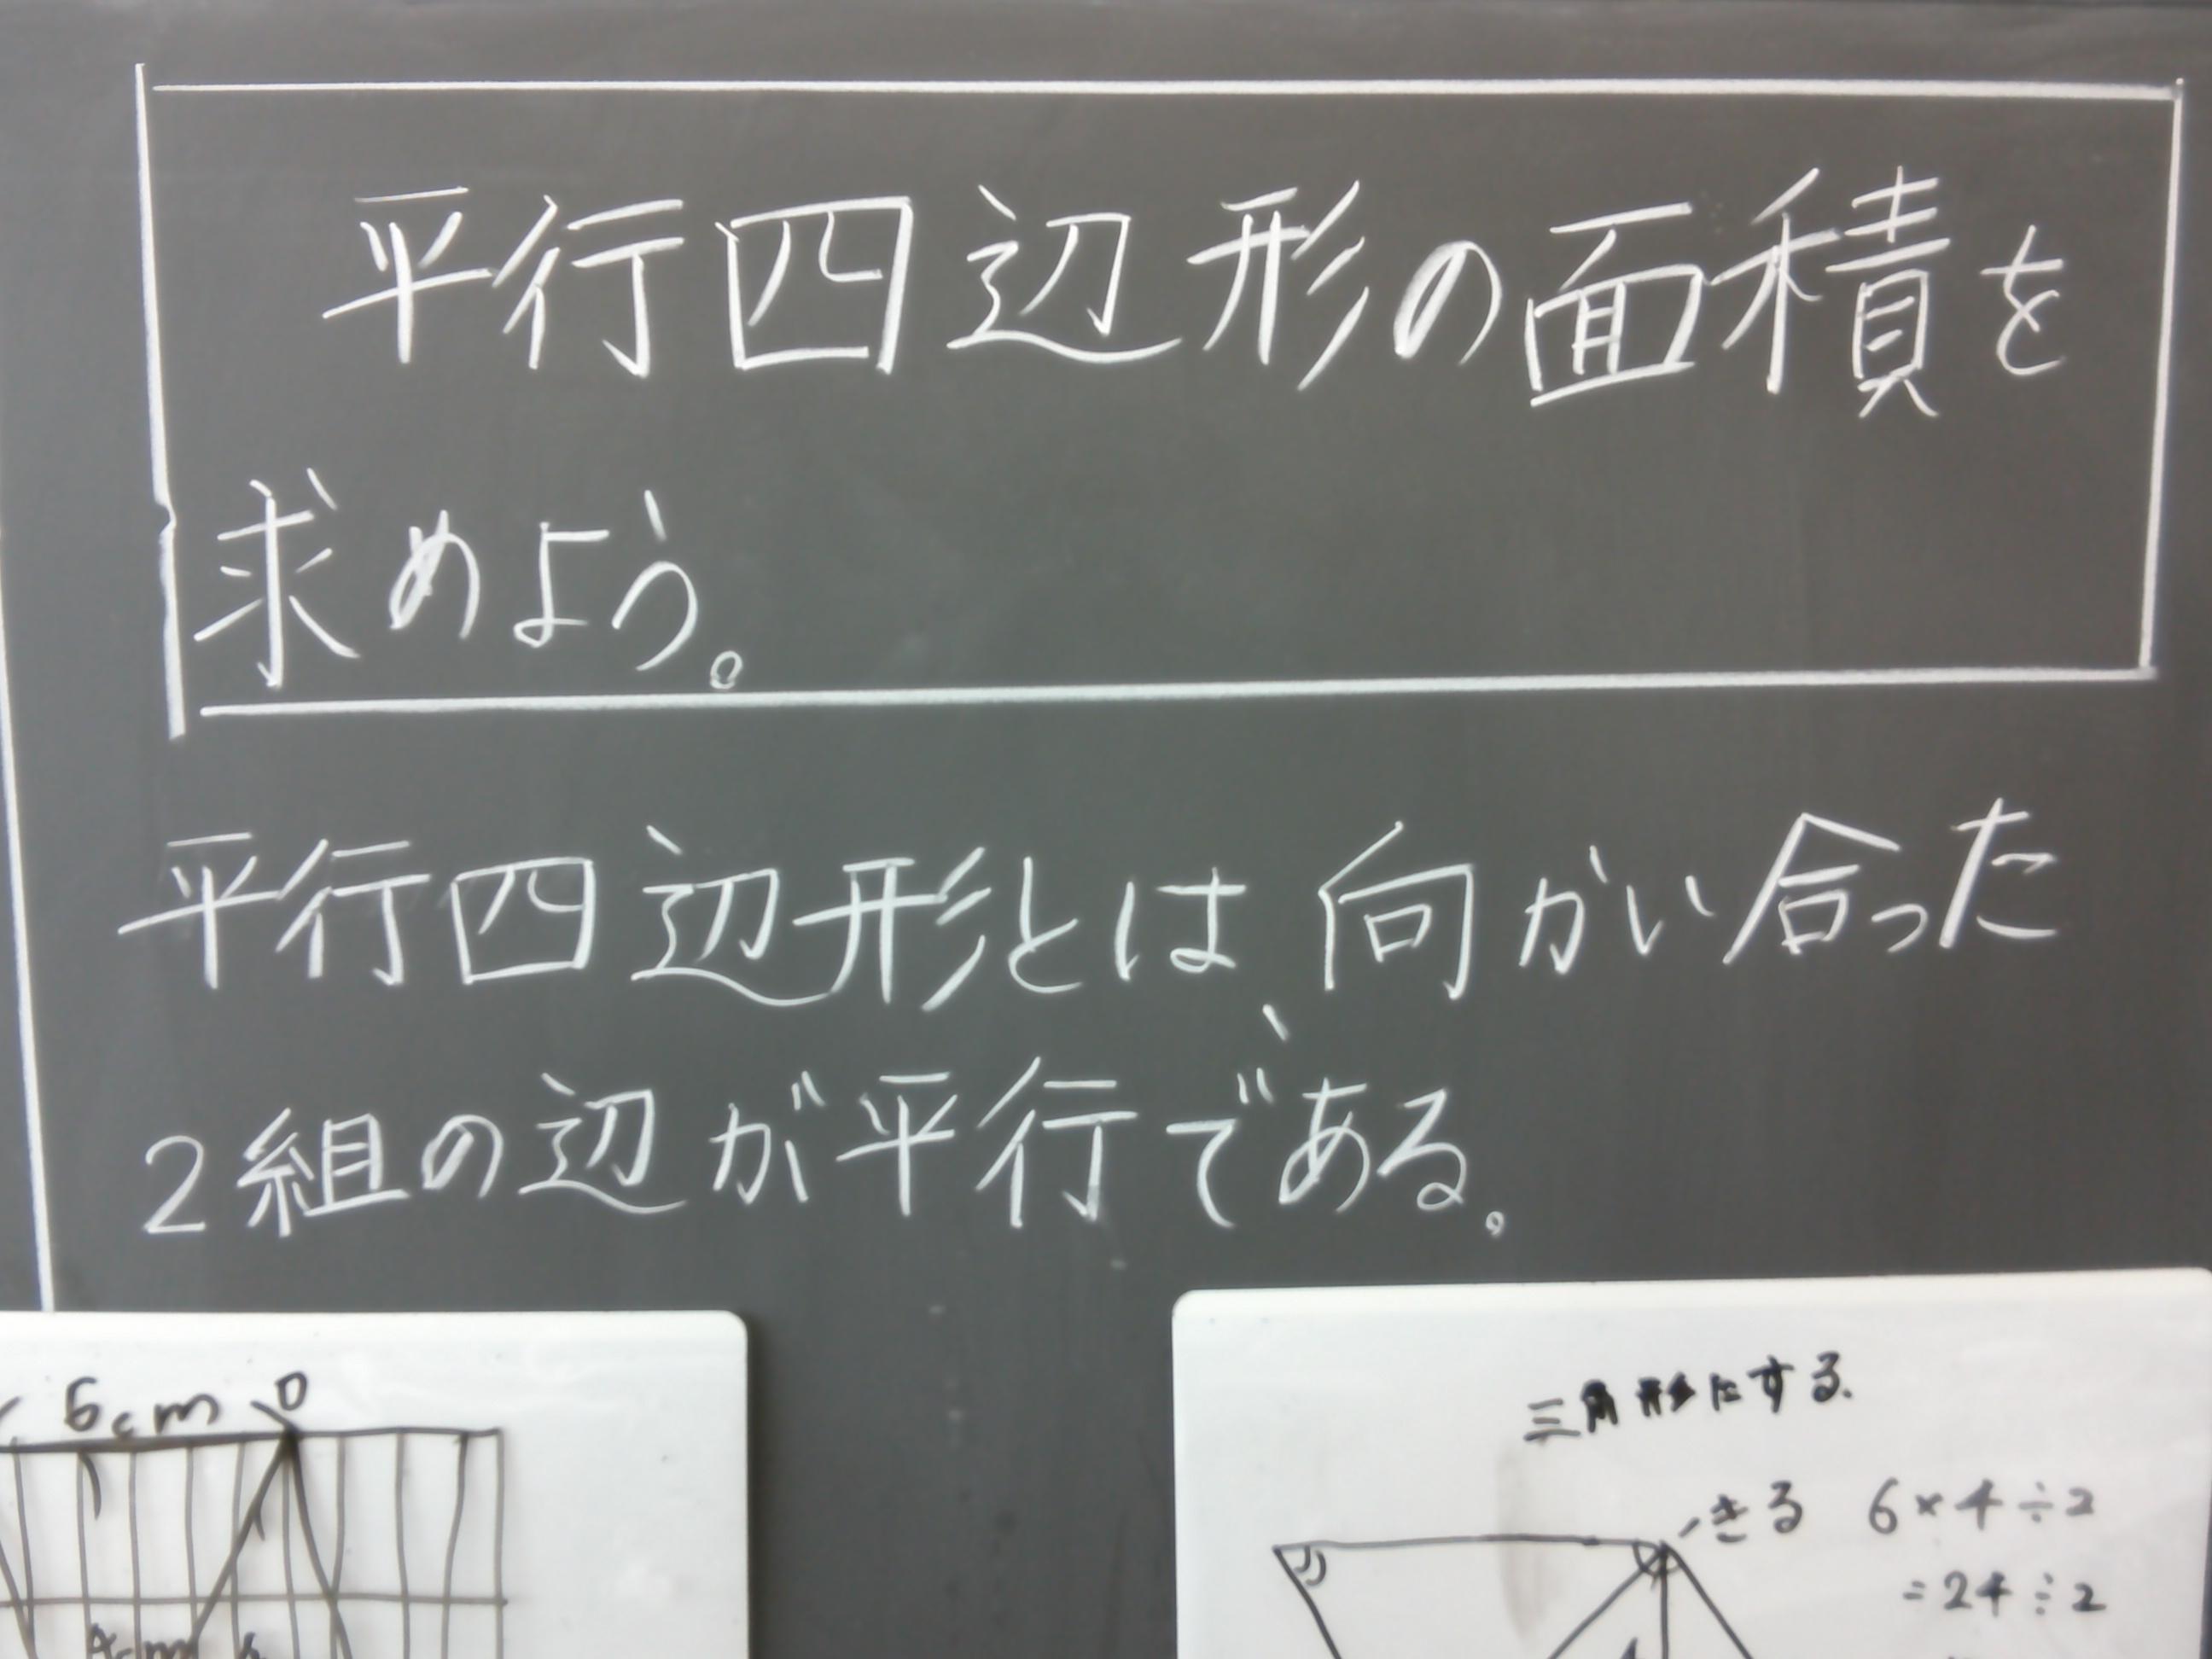 平行四辺形の面積を
求めよう。
平行四辺形とは、向かい合った
2組の辺が平行である。
6cm D
4cm
三角形にする.
きる 6×4÷2
=24÷2